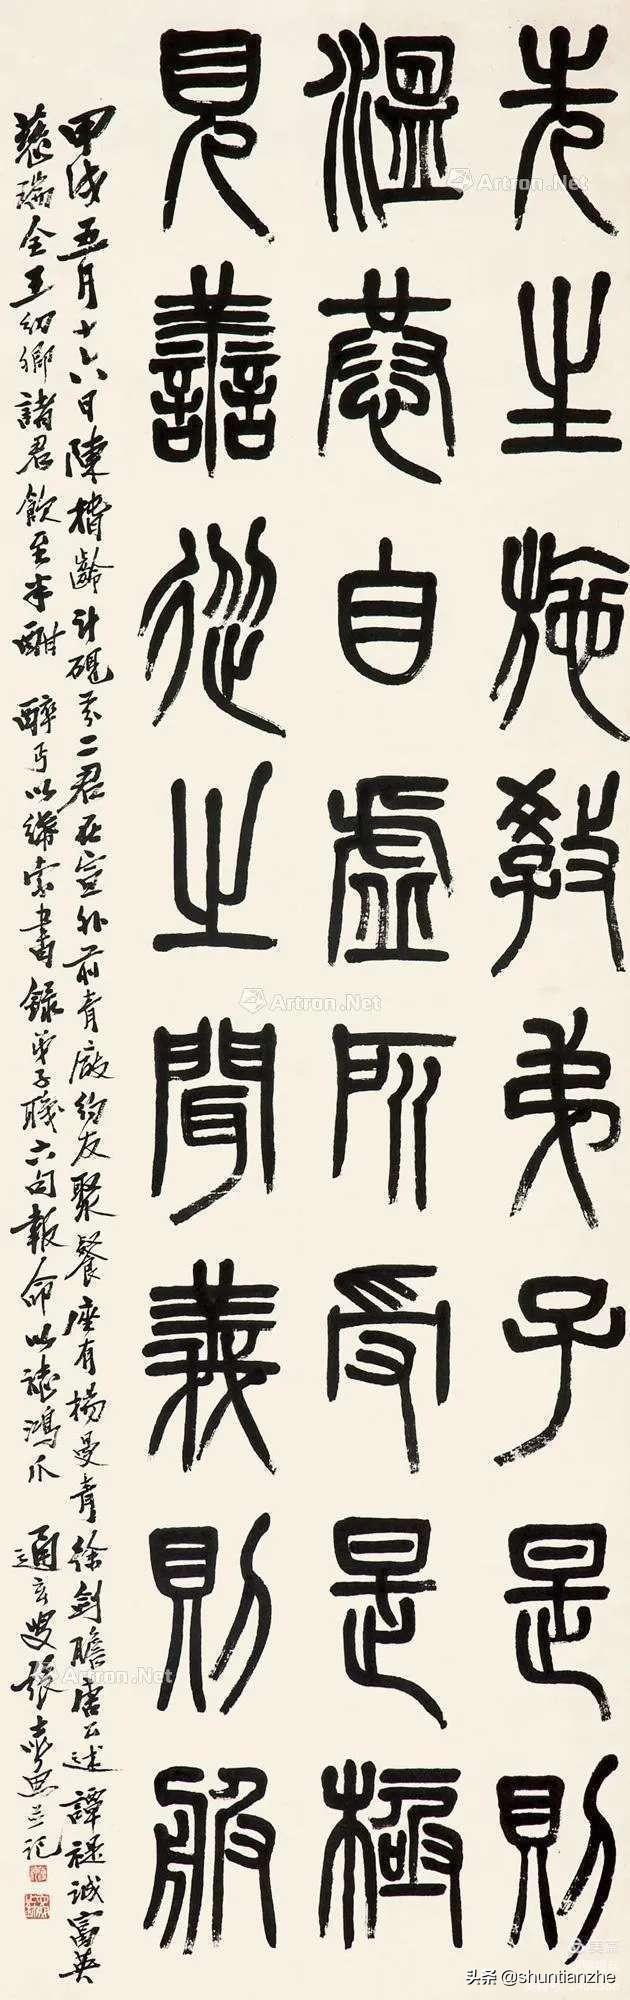 先生施教弟子是則
溫恭自虛所受是極
見譱從之聞義則服
甲戌五月十六日陳樁齡計硯芬二君在宣外前青廠約友聚餐座有楊曼青徐劍膽唐公述譚禔誠富英
慧瑞全王幼卿諸君飲至半酣
醉丐以縑索書錄弟子職六句報命以誌鴻爪
通玄叟張
並記
Artron.Net
Artron.Net
Artron.Net
头条 @shuntianzhe